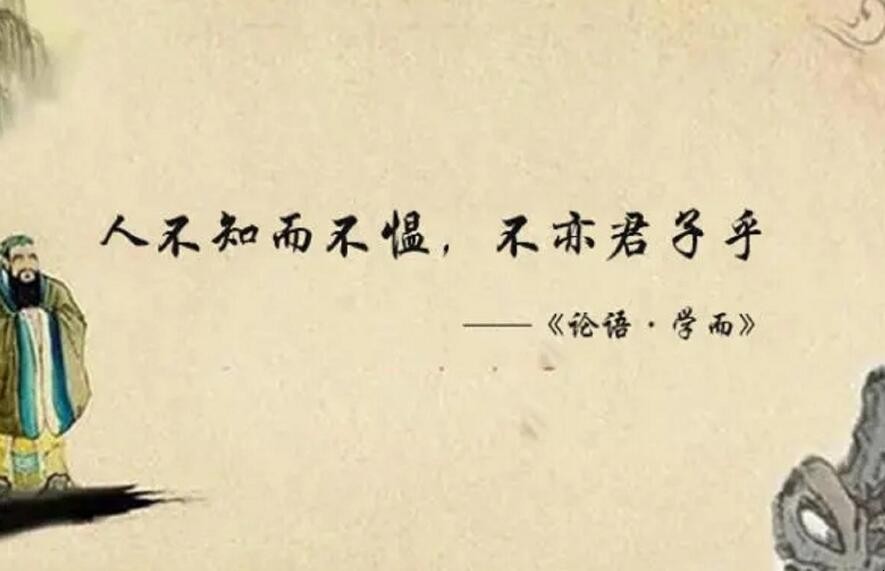 人不知而不愠，不亦君子乎
——《论语·学而》